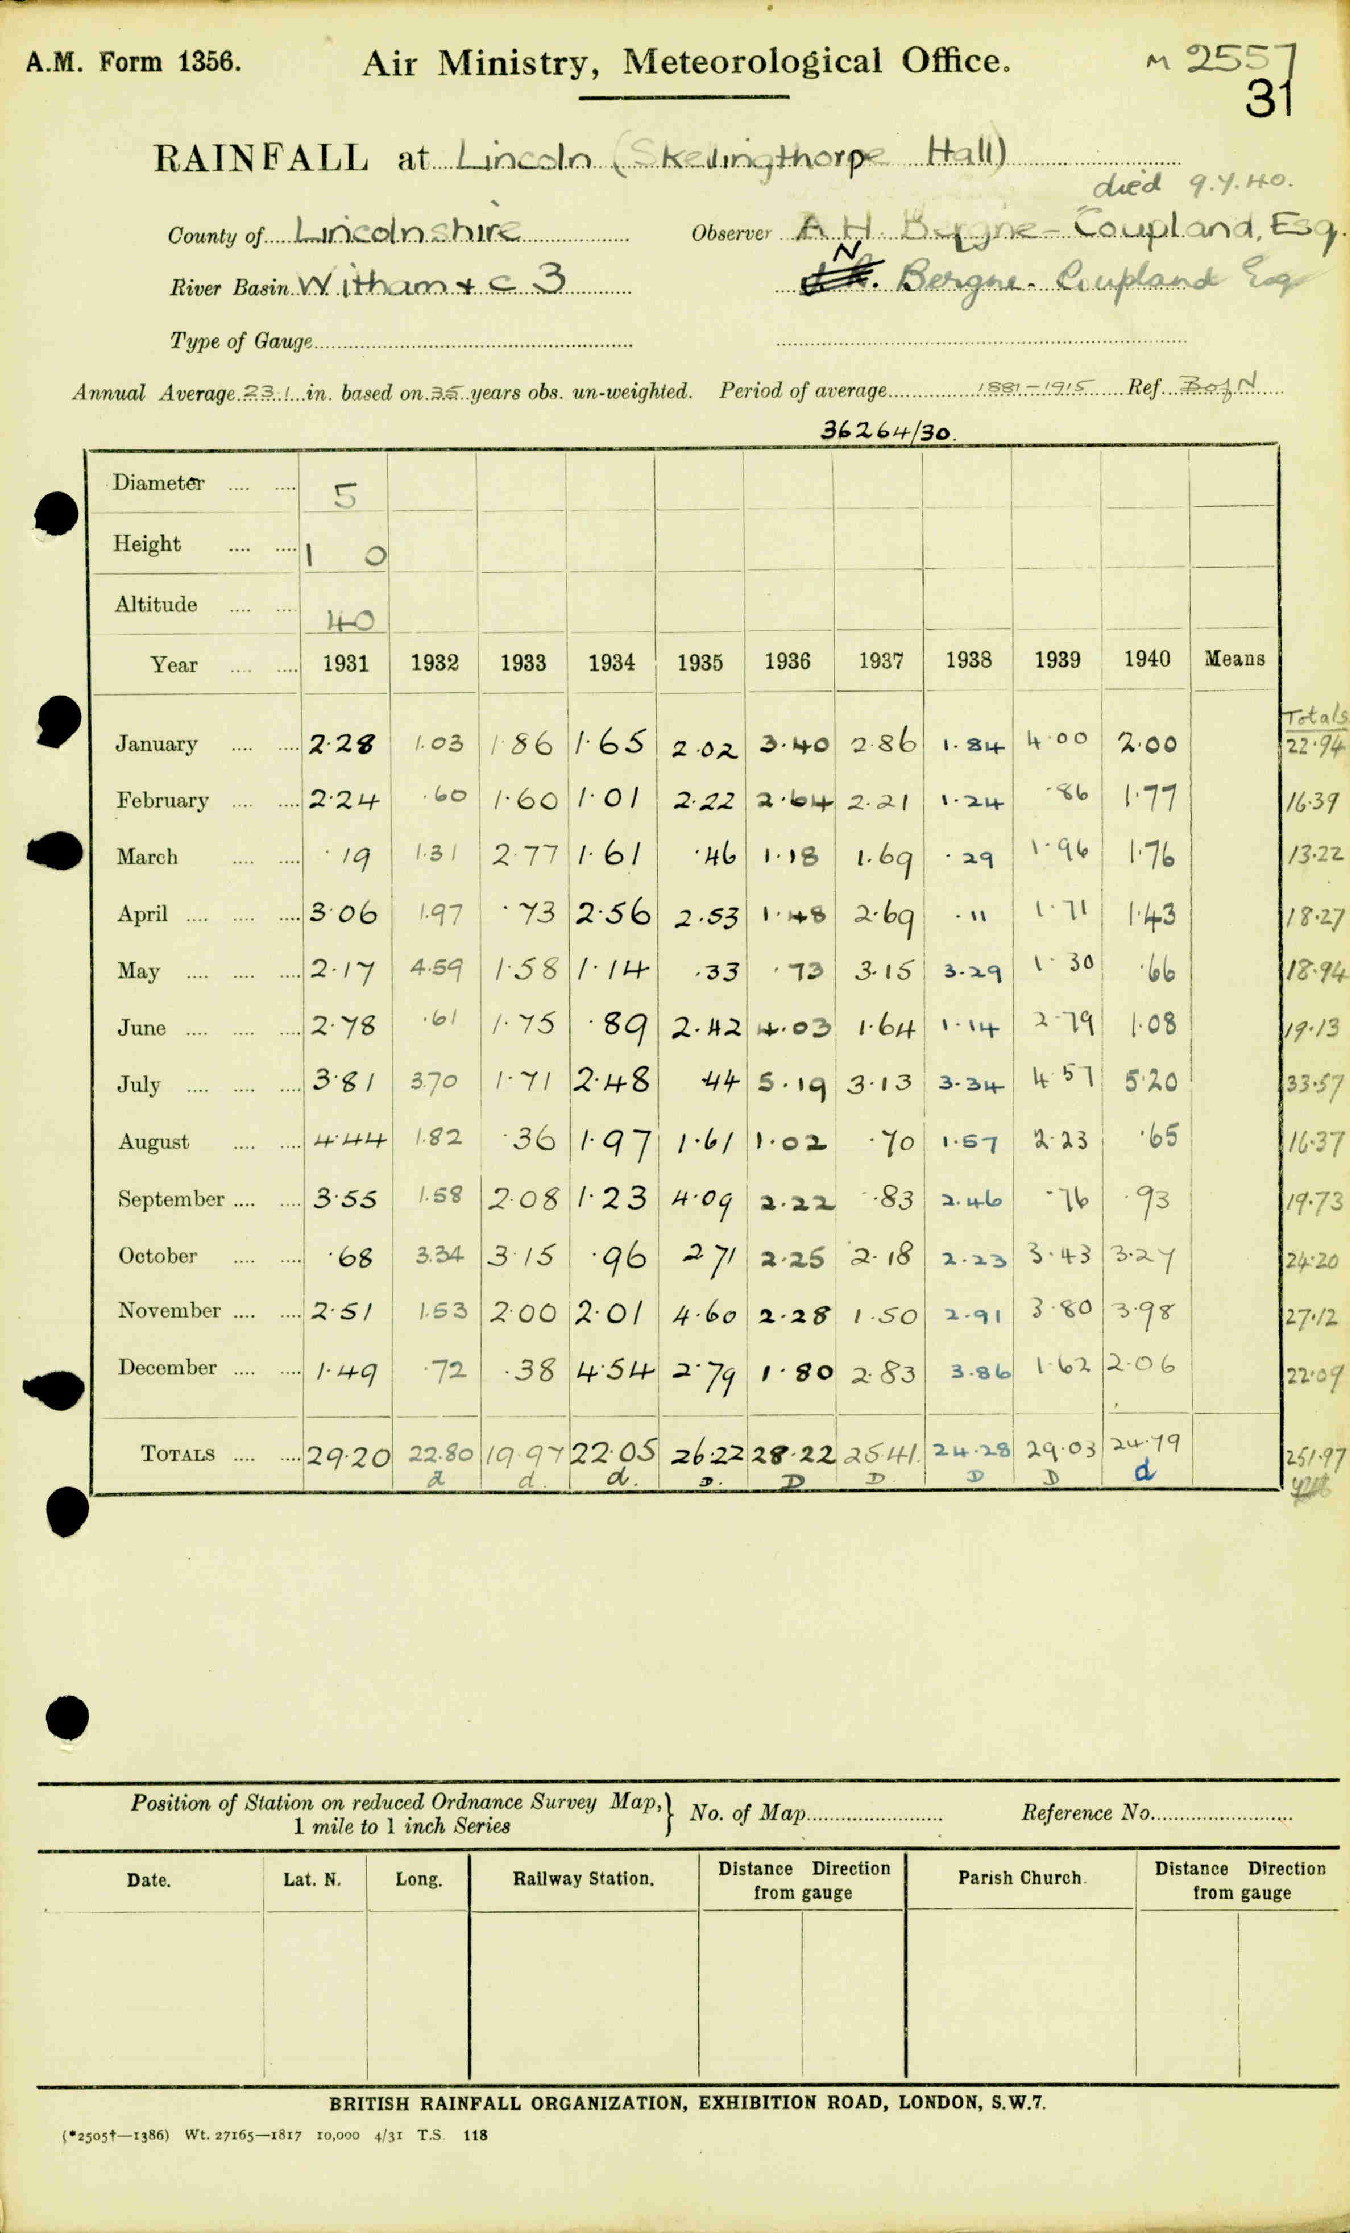 A.M. Form 1356. Air Ministry, Meteorological Office. M 2557
31
RAINFALL at Lincoln (Skellingthorpe Hall)
died 9.7.40.
County of Lincolnshire Observer A H. Bergne-Coupland, Esq.
River Basin Witham + C 3 N Bergne-Coupland Esq
Type of Gauge
Annual Average 23.1 in. based on 35 years obs. un-weighted. Period of average 1881-1915 Ref. B of N
36264/30.
Diameter 5
Height 1 0
Altitude 40
Year 1931 1932 1933 1934 1935 1936 1937 1938 1939 1940 Means
Totals
January 2.28 1.03 1.86 1.65 2.02 3.40 2.86 1.84 4.00 2.00 22.94
February 2.24 .60 1.60 1.01 2.22 2.64 2.21 1.24 .86 1.77 16.39
March .19 1.31 2.77 1.61 .46 1.18 1.69 .29 1.96 1.76 13.22
April 3.06 1.97 .73 2.56 2.53 1.48 2.69 .11 1.71 1.43 18.27
May 2.17 4.59 1.58 1.14 .33 .73 3.15 3.29 1.30 .66 18.94
June 2.78 .61 1.75 .89 2.42 4.03 1.64 1.14 2.79 1.08 19.13
July 3.81 3.70 1.71 2.48 .44 5.19 3.13 3.34 4.57 5.20 33.57
August 4.44 1.82 .36 1.97 1.61 1.02 .70 1.57 2.23 .65 16.37
September 3.55 1.58 2.08 1.23 4.09 2.22 .83 2.46 .76 .93 19.73
October .68 3.34 3.15 .96 2.71 2.25 2.18 2.23 3.43 3.27 24.20
November 2.51 1.53 2.00 2.01 4.60 2.28 1.50 2.91 3.80 3.98 27.12
December 1.49 .72 .38 4.54 2.79 1.80 2.83 3.86 1.62 2.06 22.09
TOTALS 29.20 22.80 19.97 22.05 26.22 28.22 25.41 24.28 29.03 24.79 251.97
d d. d. D. D D D D d
Position of Station on reduced Ordnance Survey Map, } No. of Map Reference No.
1 mile to 1 inch Series
Date. Lat. N. Long. Railway Station. Distance Direction Parish Church. Distance Direction
from gauge from gauge
BRITISH RAINFALL ORGANIZATION, EXHIBITION ROAD, LONDON, S.W.7.
(*2505†—1386) Wt. 27165—1817 10,000 4/31 T.S. 118